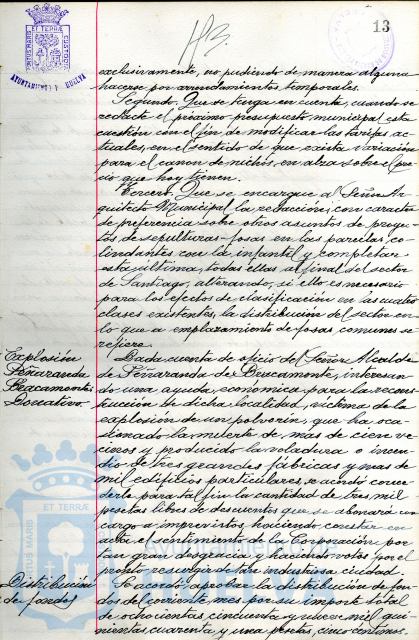 13
PORTUS MARIS ET TERRAE CUSTODIA
AYUNTAMIENTO DE HUELVA
exclusivamente, no pudiendo de manera alguna
hacerse por arrendamientos temporales.
Segundo. Que se tenga en cuenta, cuando se
redacte el próximo presupuesto municipal esta
cuestión con el fin de modificar las tarifas ac-
tuales, en el sentido de que exista variación
para el canon de nichos, en alza sobre el pre-
cio que hoy tienen.
Tercero. Que se encargue al Señor Ar-
quitecto Municipal la redacción, con carácter
de preferencia sobre otros asuntos de proyec-
tos de sepulturas-fosas en las parcelas co-
lindantes con la infantil y completar
esta última, todas ellas al final del sector
de Santiago, alterando, si ello es necesario
para los efectos de clasificación en las cuatro
clases existentes, la distribución del sector en
lo que a emplazamiento de fosas comunes se
refiere.
Explosión
Peñaranda
Bracamonte.
Donativo.
Dada cuenta de oficio del Señor Alcalde
de Peñaranda de Bracamonte, interesan-
do una ayuda económica para la recons-
trucción de dicha localidad, víctima de la
explosión de un polvorín, que ha oca-
sionado la muerte de más de cien ve-
cinos y producido la voladura o incen-
dio de tres grandes fábricas y más de
mil edificios particulares, se acordó conce-
derle para tal fin la cantidad de tres mil
pesetas libres de descuentos que se abonará con
cargo a imprevistos, haciendo constar en
acta el sentimiento de la Corporación por
tan gran desgracia y haciendo votos por el
pronto resurgir de tan industriosa ciudad.
Distribución
de fondos
Se acordó aprobar la distribución de fon-
dos del corriente mes por su importe total
de ochocientas cincuenta y nueve mil qui-
nientas cuarenta y una pesetas cinco céntimos